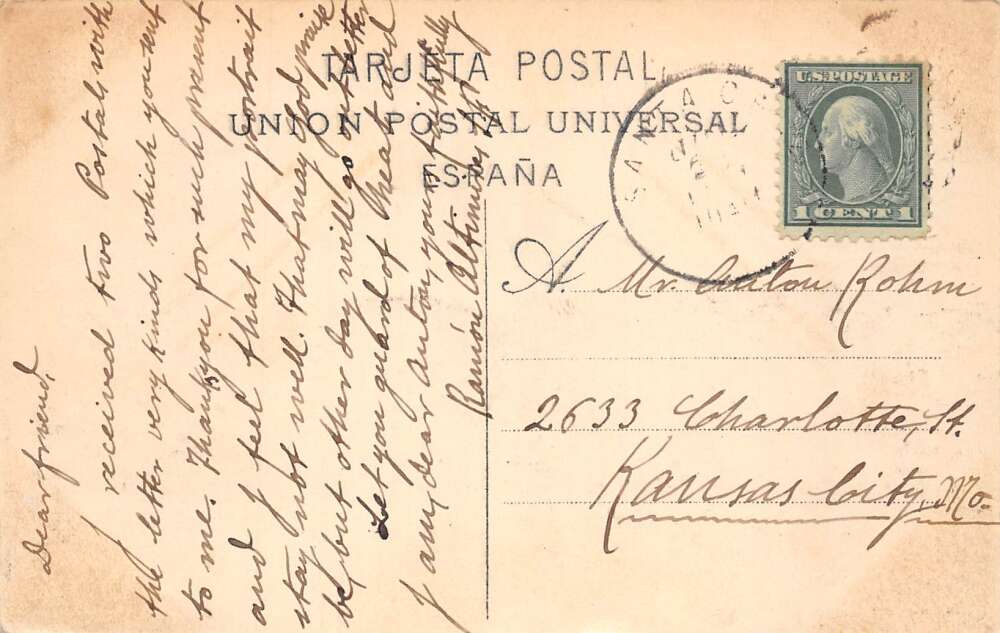 TARJETA POSTAL
UNION POSTAL UNIVERSAL
ESPAÑA
U.S. POSTAGE
1 CENT 1
SANTA
A. Mr. Anton Rohm
2633 Charlotte, St.
Kansas City, Mo.
Dear friend,
I received two Postals with
the letter very kinds which you sent
to me. Thank you for such present
and I feel that my portrait
stay not well. That may God
be, but other day will go out better
Let you guard of theat and
I am, dear Anton, your faithfully
Ramón